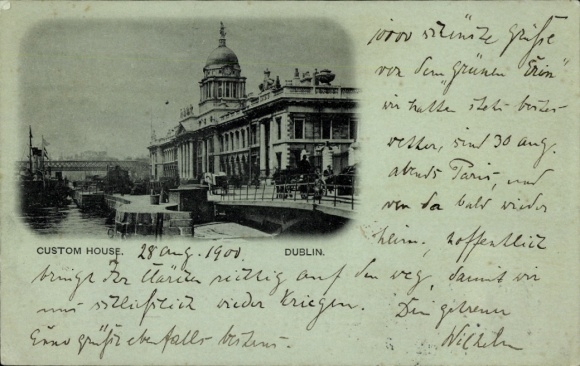 10000 schönste Grüße
von dem "grünen Erin"
wir hatten stets bestes
wetter, sind 30 aug.
abends Paris, und
von da bald wieder
heim, hoffentlich
CUSTOM HOUSE. 28 aug. 1900. DUBLIN.
bringt Ihr richtig auf den weg, damit wir
uns schließlich wieder kriegen. Dein getreuer
grüßt ebenfalls bestens. Wilhelm